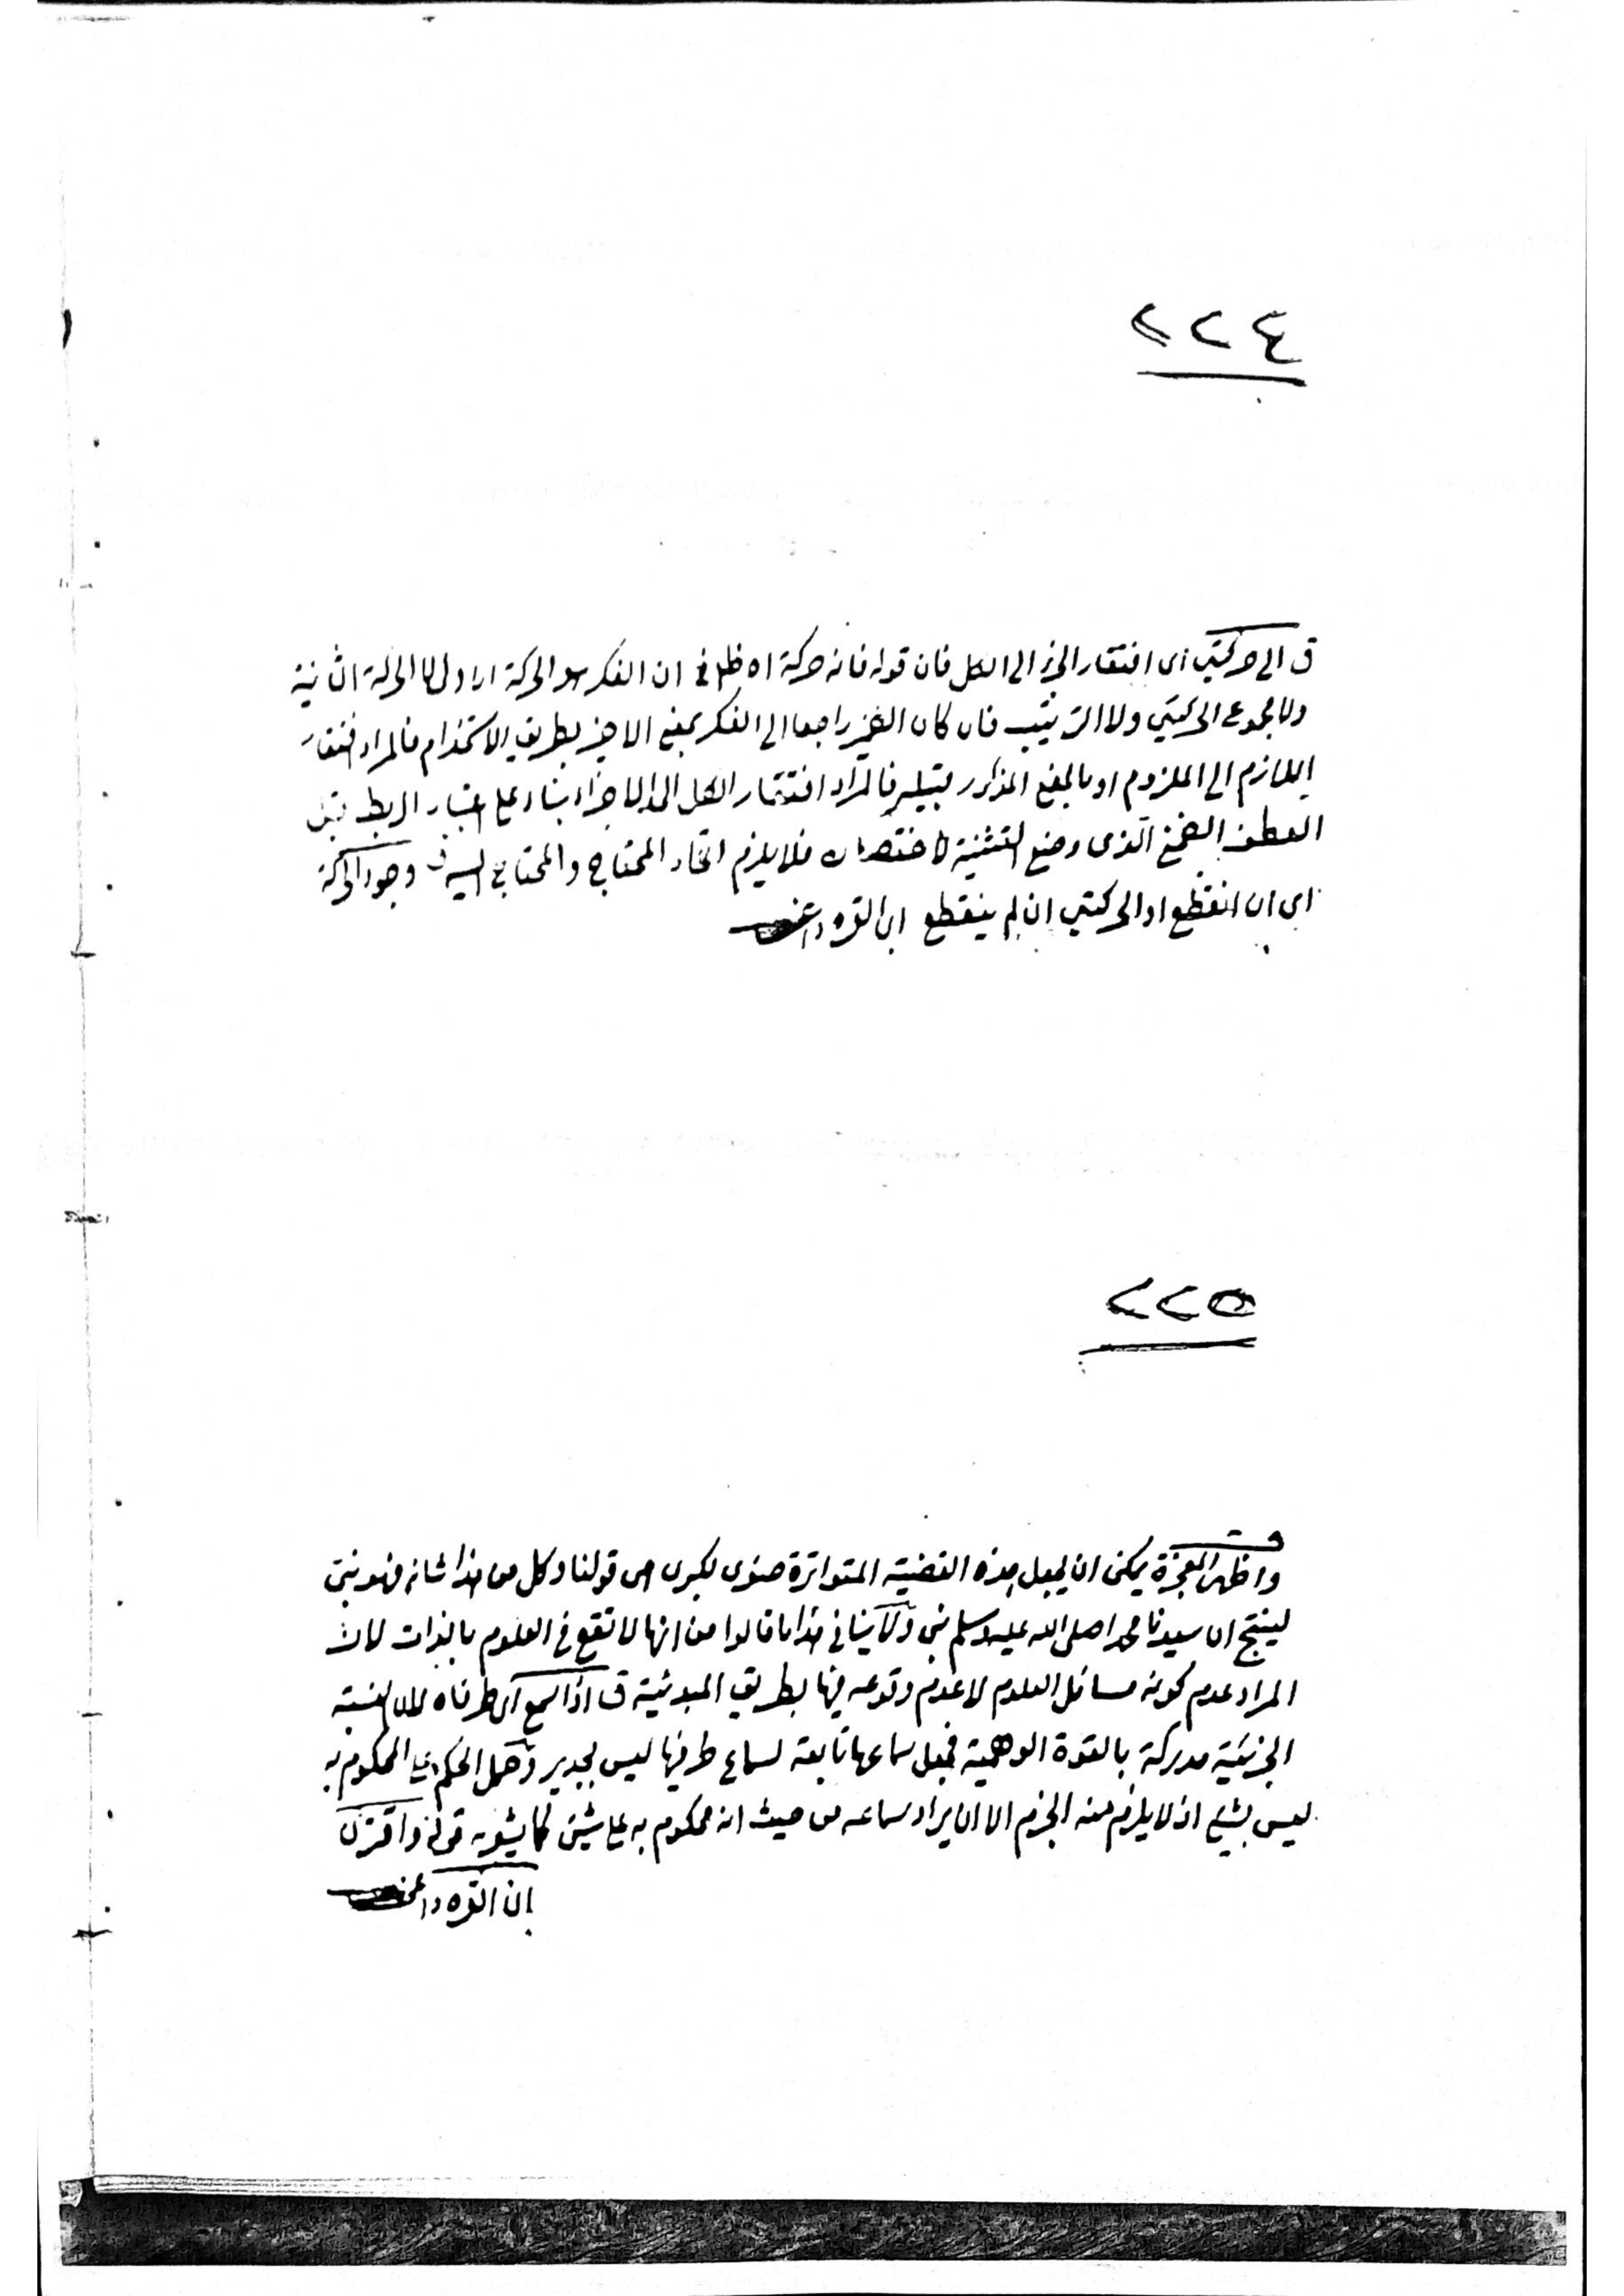 ٢٢٤
ق الى حركتين اى افتقار الجزء الى الكل فان قوله فانه حركة اه ظاهر فى ان الفكر هو الحركة الاولى لا الحركة الثانية
ولا مجموع الحركتين ولا الترتيب فان كان الضمير راجعا الى الفكر بمعنى الاخير بطريق الاستخدام فالمراد افتقار
اللازم الى الملزوم او بالمعنى المذكور قبيله فالمراد افتقار الكل الى الاجزاء بناء على اعتبار الربط قبل
العطف الضمنى الذى وضع التثنية لاختصاره فلا يلزم اتحاد المحتاج والمحتاج اليه ق وجود الحركة
اى ان انقطع او الحركتين ان لم ينقطع ابن القره داغى
٢٢٥
ق واظهر المعجزة يمكن ان يجعل هذه القضية المتواترة صغرى لكبرى هى قولنا وكل من هذا شانه فهو نبى
لينتج ان سيدنا محمدا صلى الله عليه وسلم نبى ولا ينافى هذا ما قالوا من انها لا تقع فى العلوم بالذات لان
المراد عدم كونه مسائل العلوم لا عدم وقوعه فيها بطريق المبدئية ق اذا سمع اى طرفاه لان النسبة
الجزئية مدركة بالقوة الوهمية فجعل سماعها تابعة لسماع طرفيها ليس بجدير وحمل الحكم على المحكوم به
ليس بشيئ اذ لا يلزم منه الجزم الا ان يراد سماعه من حيث انه محكوم به على شيئ كما يشعر به قوله واقترن
ابن القره داغى